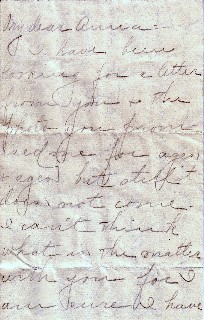 My dear Anna:-
I have been
looking for a letter
from you & the
you
me for ages
& ages but still it
does not come
I can't think
what is the matter
with you for I
am sure I have